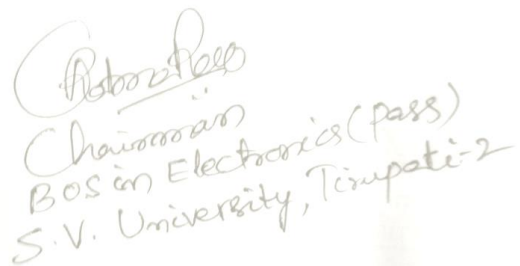 Chairman
BOS in Electronics (Pass)
S.V. University, Tirupati-2